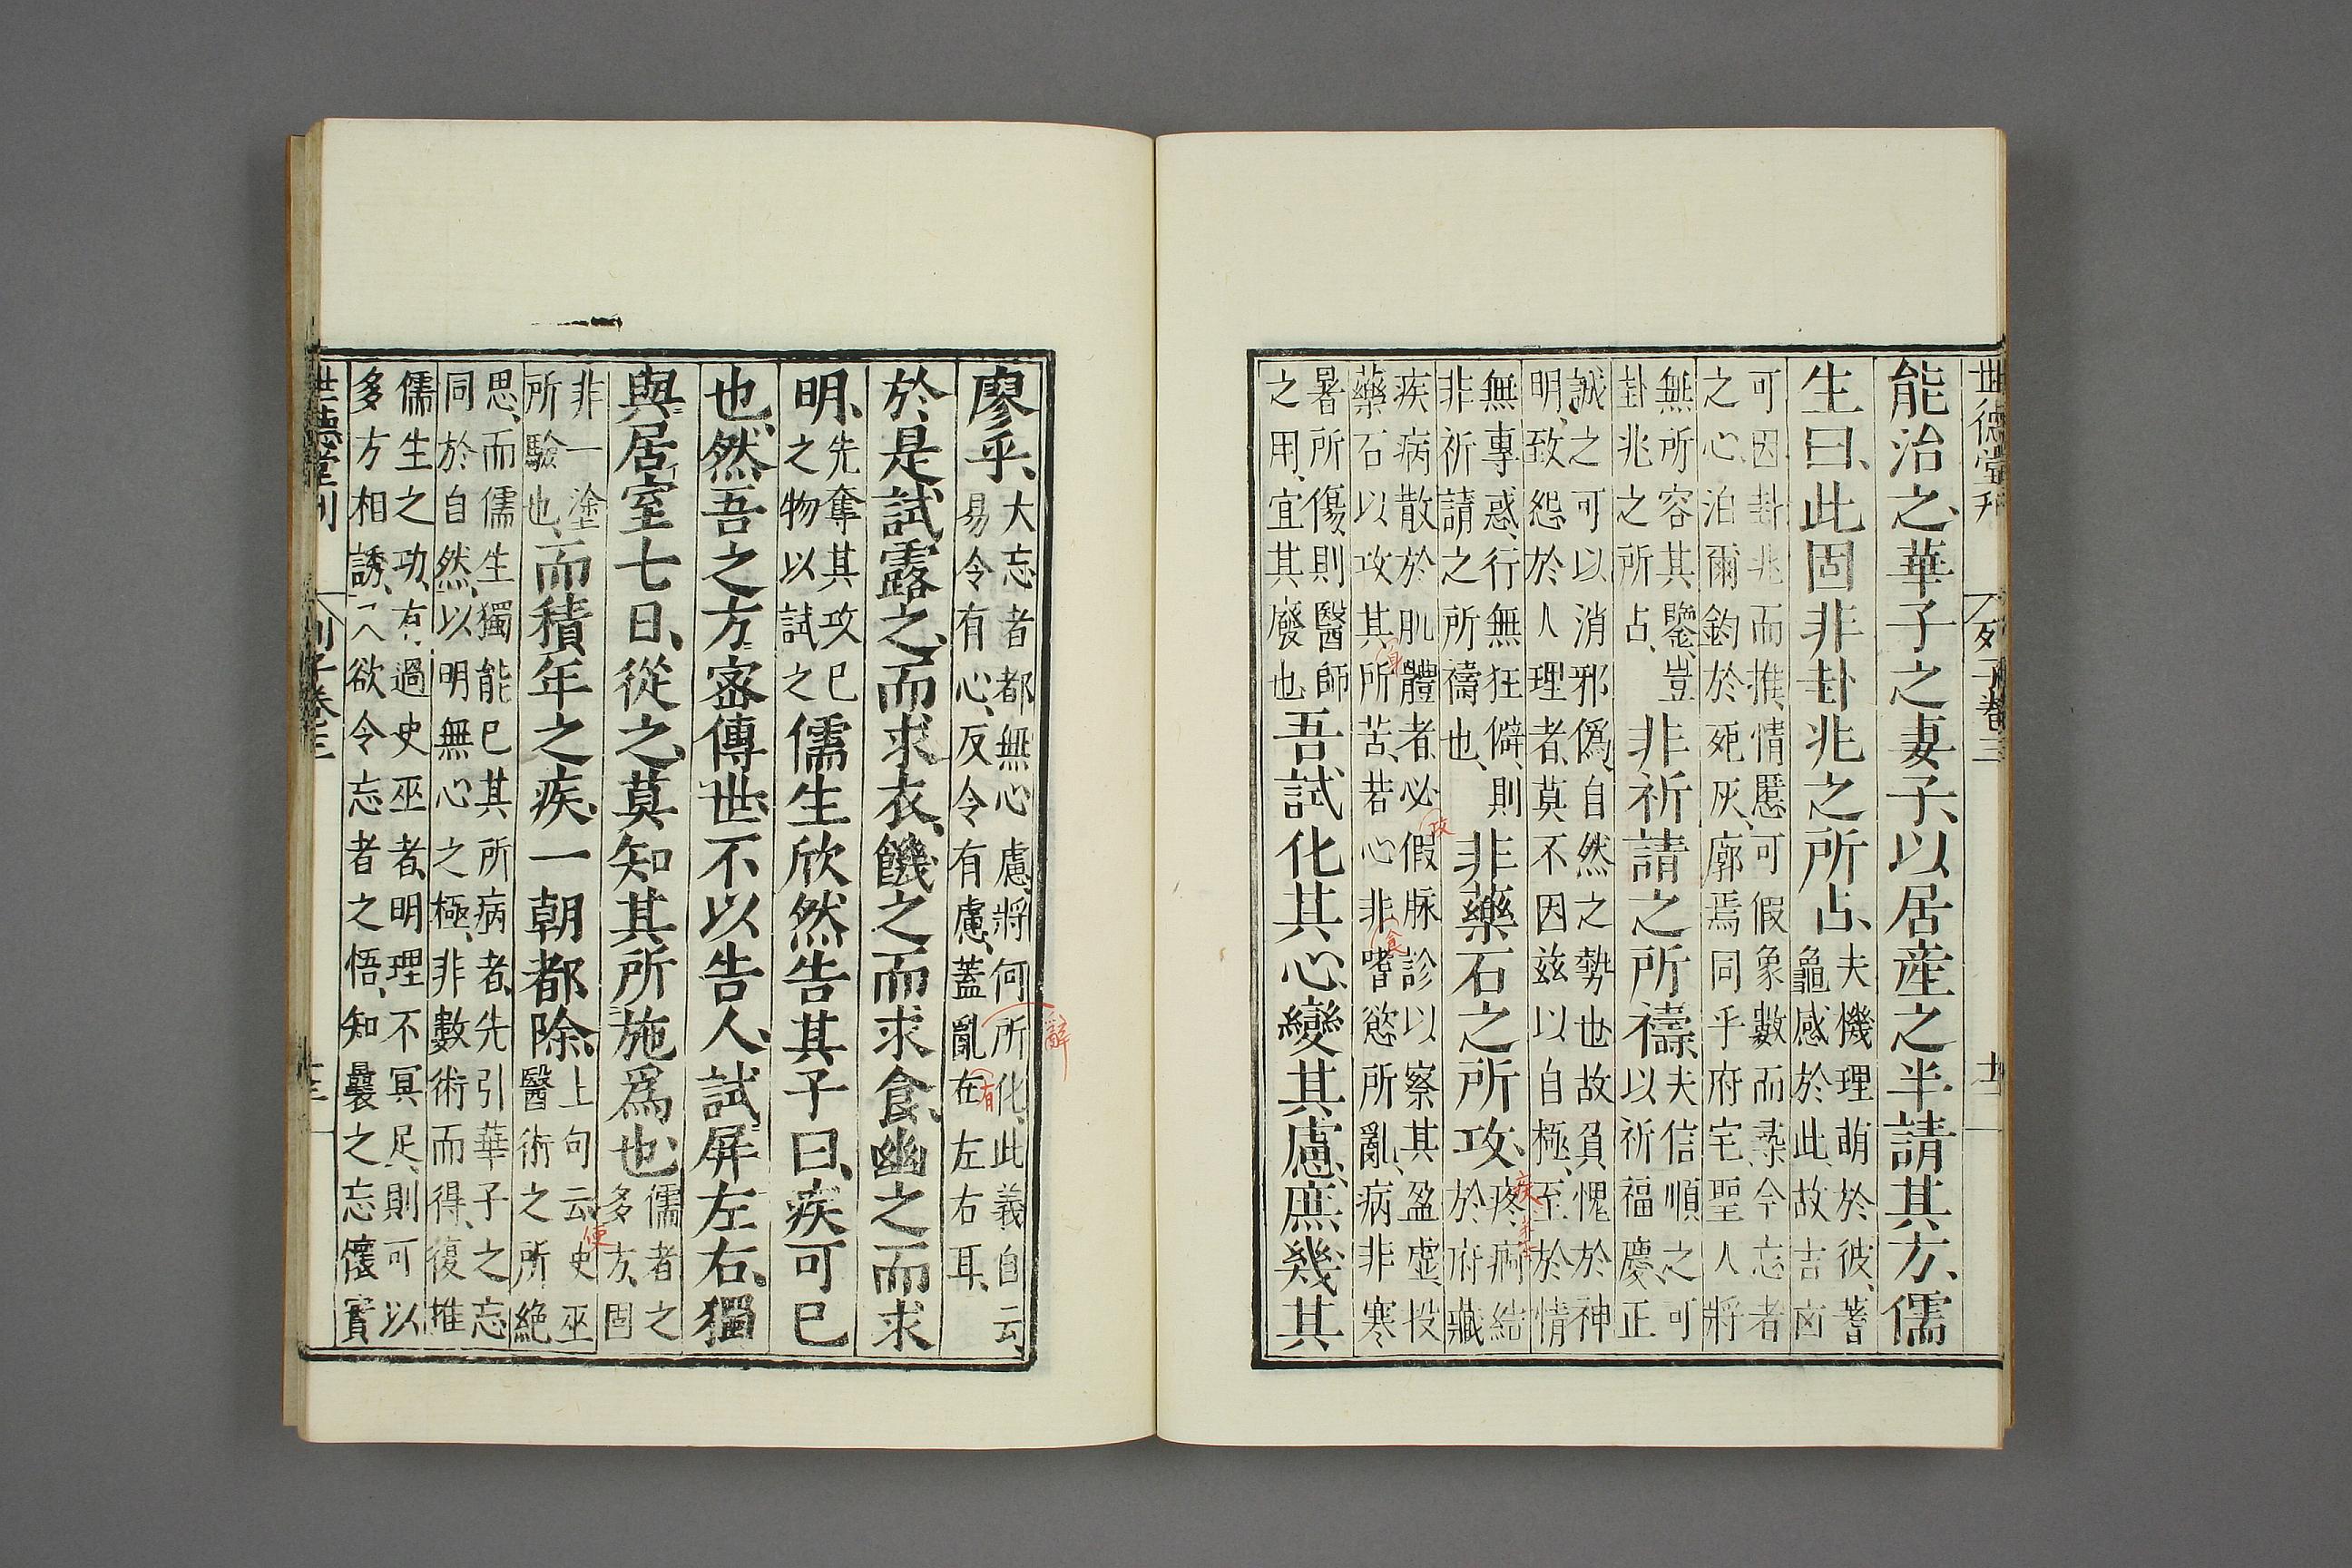 世德堂刊 列子卷三 十二
能治之華子之妻子以居産之半請其方儒
生曰此固非卦兆之所占夫機理萌於彼蓍龜感於此故吉㐫
可因卦兆而推情慝可假象數而尋今忘者
之心泊爾鈞於死灰廓焉同乎府宅聖人將
無所容其鑒豈卦兆之所占非祈請之所禱夫信順之可以祈福慶正
誠之可以消邪僞自然之勢也故負愧於神
明致怨於人理者莫不因兹以自極至於情
無專惑行無狂僻則非祈請之所禱也非藥石之所攻疼痾結於府藏
疾病散於肌體者必假脉診以察其盈虚投
藥石以攻其所苦若心非嗜慾所亂病非寒
暑所傷則醫師之用宜其廢也吾試化其心變其慮庶幾其
廖乎大忘者都無心慮將何所化此義自云易令有心反令有慮蓋亂在左右耳
辭
有
於是試露之而求衣饑之而求食幽之而求
明先奪其攻已之物以試之儒生欣然告其子曰疾可已
也然吾之方宻傳世不以告人試屏左右獨
與居室七日從之莫知其所施爲也儒者之多方固
非一塗所驗也而積年之疾一朝都除上句云史巫醫術之所絶
便
思而儒生獨能已其所病者先引華子之忘
同於自然以明無心之極非數術而得復推
儒生之功有過史巫者明理不冥足則可以
多方相誘又欲令忘者之悟知曩之忘懷實
世德堂刊 列子卷三